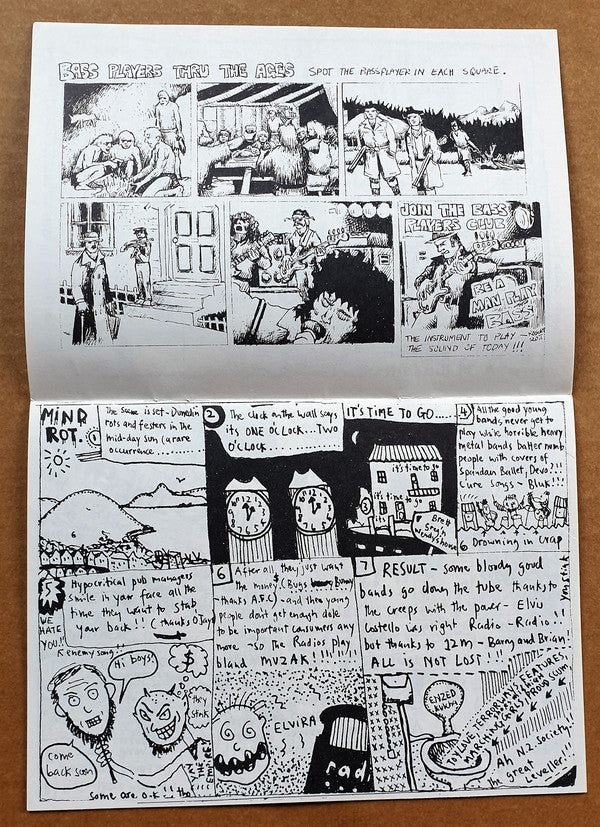 BASS PLAYERS THRU THE AGES SPOT THE BASSPLAYER IN EACH SQUARE.
JOIN THE BASS
PLAYERS CLUB
BE A
MAN PLAY
BASS
THE INSTRUMENT TO PLAY
THE SOUND OF TODAY!!!
MIND
ROT.
1
The scene is set - Dunedin
rots and festers in the
mid-day sun (a rare
occurrence..........
2
The clock on the wall says
its ONE O'CLOCK...TWO
O'CLOCK..........
3
IT'S TIME TO GO.....
it's time to go
it's time to go
4
All the good young
bands never get to
play while horrible heavy
metal bands batter numb
people with covers of
Spandau Ballet, Devo?!!
Cure songs - Bluk!!!
Drowning in Crap
5
WE
HATE
YOU!!
Hypocritical pub managers
smile in your face all the
time they want to stab
your back!! (thanks O'Jays)
R enemy song!!
Hi boys!
come
back soon
$
they
stink
some are o.k!! tho
6
After all they just want
the money $ (Bugs
thanks A.F.C) - and then young
people don't get enough dole
to be important consumers any
more - so the Radios play
bland MUZAK!!!!!!!
ELVIRA
radi
7
RESULT - some bloody good
bands go down the tube thanks to
the creeps with the power - Elvis
Costello was right Radio - Radio!!
but thanks to 12m - Barry and Brian!
ALL is NOT LOST!!!
ENZED
MARCHING GIRLS, FROG SCUM,
Ah N.Z. society!!
the great
leveller!!